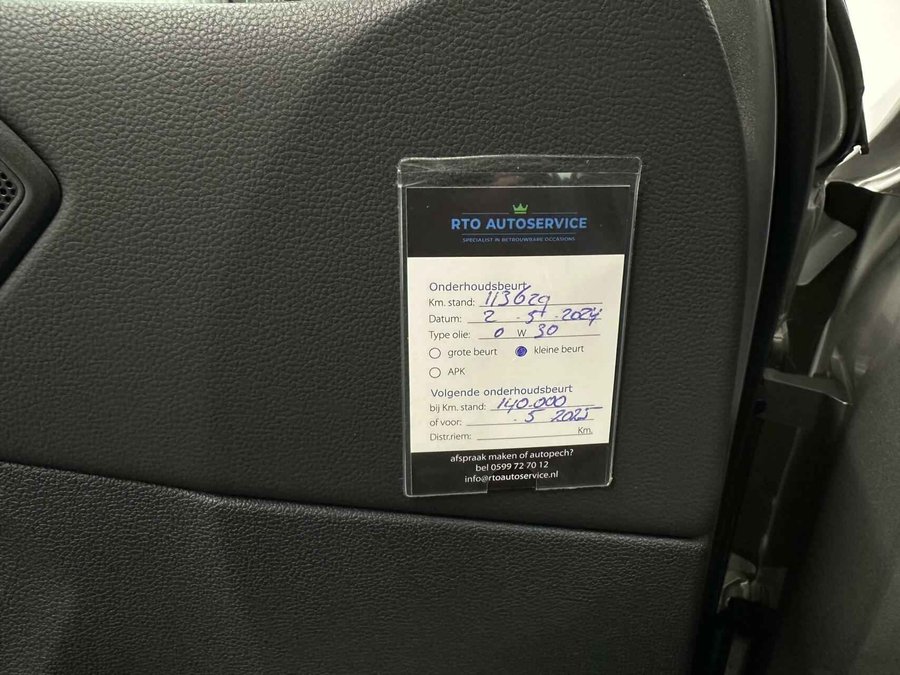 RTO AUTOSERVICE
SPECIALIST IN BETROUWBARE OCCASIONS
Onderhoudsbeurt
Km. stand: 113629
Datum: 2 - 5 - 2024
Type olie: 0 W 30
grote beurt kleine beurt
APK
Volgende onderhoudsbeurt
bij Km. stand: 140.000
of voor: . 5 2025
Distr.riem: Km.
afspraak maken of autopech?
bel 0599 72 70 12
info@rtoautoservice.nl